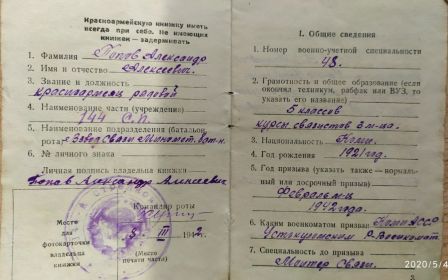 Красноармейскую книжку иметь
всегда при себе. Не имеющих
книжек — задерживать
1. Фамилия Попов Александр
2. Имя и отчество Алексеевич.
3. Звание и должность
красноармеец рядовой
4. Наименование части (учреждения)
144 С.П.
5. Наименование подразделения (батальон,
рота) Взвод Связи Миномет. бат-н.
6. № личного знака
Личная подпись владельца книжки
Попов Александр Алексеевич
Командир роты
Место
для
фотокарточки
владельца
книжки
5 III 1942
(Место
печати части)
I. Общие сведения
1. Номер военно-учетной специальности
48.
2. Грамотность и общее образование (если
окончил техникум, рабфак или ВУЗ, то
указать его название)
5 классов
курсы связистов 3 м-ца.
3. Национальность Коми.
4. Год рождения 1921 год.
5. Год призыва (указать также — нормаль-
ный или досрочный призыв)
Февраль м-ц
1942 года.
6. Каким военкоматом призван Коми АССР
Устькуломским Р. Военкомат
7. Специальность до призыва
Монтер Связи.
2020/5/4